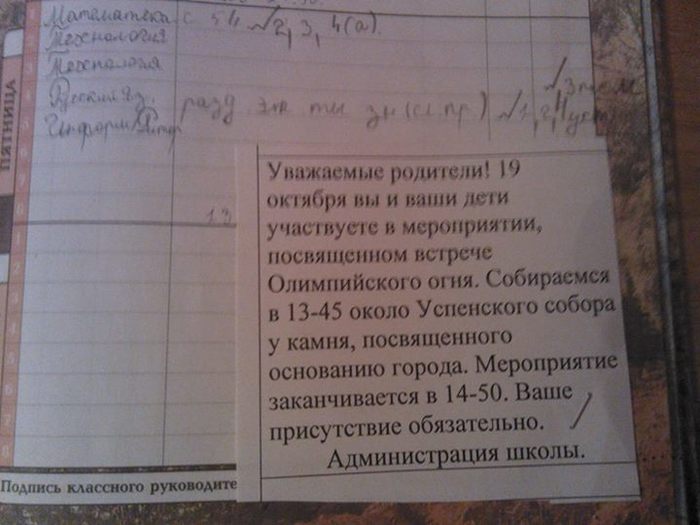 ПЯТНИЦА
Математика с 54 № 2, 3, 4(а).
Технология
Технология
Русский яз. разд эк ты зн (сл. пр.) № 1, 2, 4
Информ
13
Уважаемые родители! 19
октября вы и ваши дети
участвуете в мероприятии,
посвященном встрече
Олимпийского огня. Собираемся
в 13-45 около Успенского собора
у камня, посвященного
основанию города. Мероприятие
заканчивается в 14-50. Ваше
присутствие обязательно.
Администрация школы.
Подпись классного руководите